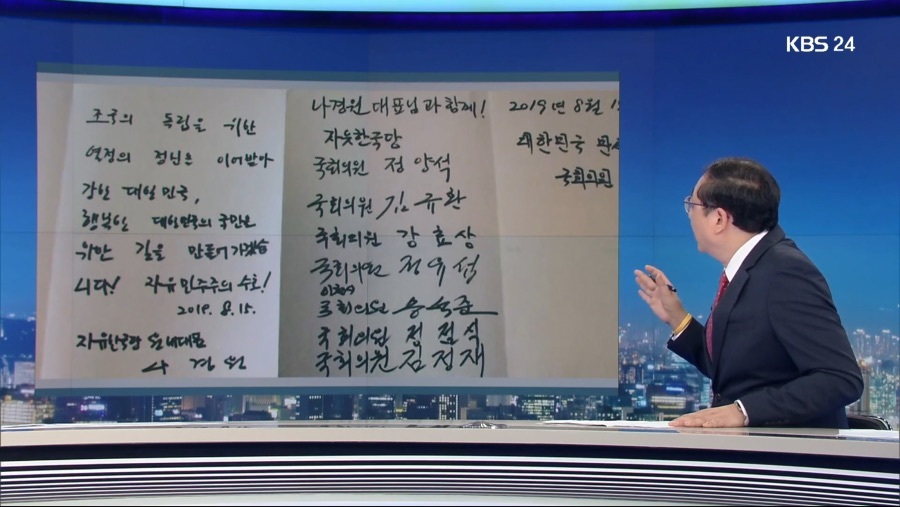 KBS 24
조국의 독립을 위한
열정의 정신을 이어받아
강한 대한민국,
행복한 대한민국의 국민을
위한 길을 만들어 가겠습
니다! 자유민주주의 수호!
2019. 8. 15.
자유한국당 원내대표
나경원
나경원 대표님과 함께!
자유한국당
국회의원 정양석
국회의원 김규환
국회의원 강효상
국회의원 정유섭
국회의원 송석준
국회의원 정점식
국회의원 김정재
2019년 8월 1
대한민국 만
국회의원